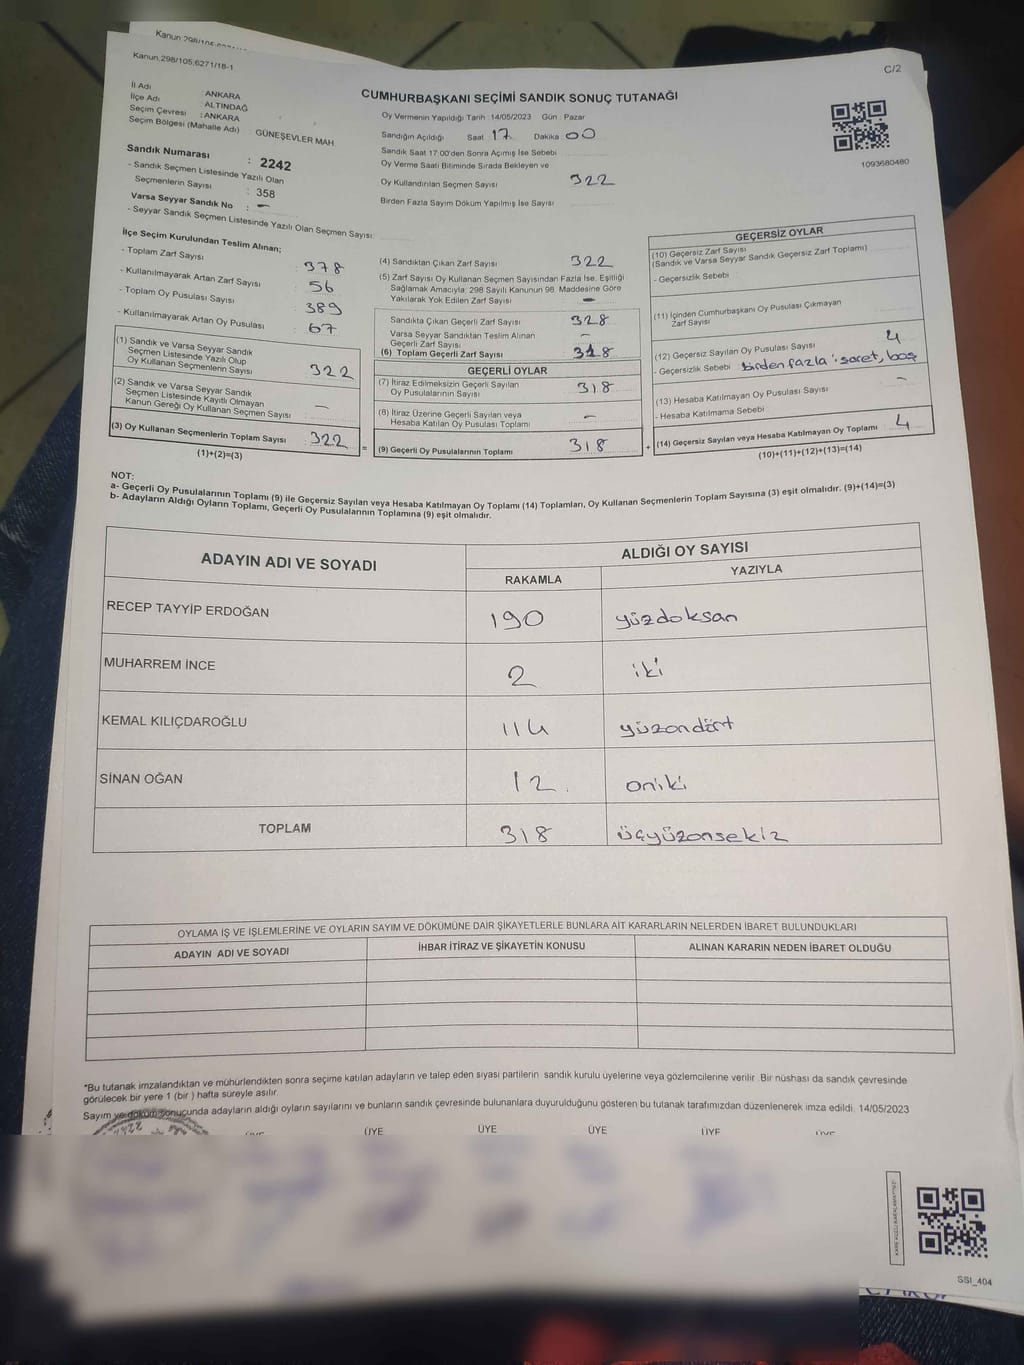 Kanun 298/105
Kanun.298/105.6271/18-1
C/2
İl Adı : ANKARA
İlçe Adı : ALTINDAĞ
Seçim Çevresi : ANKARA
Seçim Bölgesi (Mahalle Adı) : GÜNEŞEVLER MAH.
Sandık Numarası : 2242
- Sandık Seçmen Listesinde Yazılı Olan
Seçmenlerin Sayısı : 358
Varsa Seyyar Sandık No : -
- Seyyar Sandık Seçmen Listesinde Yazılı Olan Seçmen Sayısı:
CUMHURBAŞKANI SEÇİMİ SANDIK SONUÇ TUTANAĞI
Oy Vermenin Yapıldığı Tarih :14/05/2023 Gün : Pazar
Sandığın Açıldığı Saat 17 Dakika 00
Sandık Saat 17:00'den Sonra Açımış İse Sebebi
Oy Verme Saati Bitiminde Sırada Bekleyen ve
Oy Kullandırılan Seçmen Sayısı 322
Birden Fazla Sayım Döküm Yapılmış İse Sayısı
1093680480
İlçe Seçim Kurulundan Teslim Alınan;
- Toplam Zarf Sayısı : 378
- Kullanılmayarak Artan Zarf Sayısı : 56
- Toplam Oy Pusulası Sayısı : 389
- Kullanılmayarak Artan Oy Pusulası : 67
(1) Sandık ve Varsa Seyyar Sandık
Seçmen Listesinde Yazılı Olup
Oy Kullanan Seçmenlerin Sayısı : 322
(2) Sandık ve Varsa Seyyar Sandık
Seçmen Listesinde Kayıtlı Olmayan
Kanun Gereği Oy Kullanan Seçmen Sayısı : -
(3) Oy Kullanan Seçmenlerin Toplam Sayısı : 322
(1)+(2)=(3)
(4) Sandıktan Çıkan Zarf Sayısı 322
(5) Zarf Sayısı Oy Kullanan Seçmen Sayısından Fazla İse, Eşitliği
Sağlamak Amacıyla, 298 Sayılı Kanunun 98. Maddesine Göre
Yakılarak Yok Edilen Zarf Sayısı -
Sandıkta Çıkan Geçerli Zarf Sayısı 328
Varsa Seyyar Sandıktan Teslim Alınan
Geçerli Zarf Sayısı -
(6) Toplam Geçerli Zarf Sayısı 318
GEÇERLİ OYLAR
(7) İtiraz Edilmeksizin Geçerli Sayılan
Oy Pusulasının Sayısı 318
(8) İtiraz Üzerine Geçerli Sayılan veya
Hesaba Katılan Oy Pusulası Toplamı -
= (9) Geçerli Oy Pusulalarının Toplamı 318
GEÇERSİZ OYLAR
(10) Geçersiz Zarf Sayısı
(Sandık ve Varsa Seyyar Sandık Geçersiz Zarf Toplamı)
- Geçersizlik Sebebi
(11) İçinden Cumhurbaşkanı Oy Pusulası Çıkmayan
Zarf Sayısı
(12) Geçersiz Sayılan Oy Pusulası Sayısı 4
- Geçersizlik Sebebi birden fazla işaret, boş
(13) Hesaba Katılmayan Oy Pusulası Sayısı -
- Hesaba Katılmama Sebebi
+ (14) Geçersiz Sayılan veya Hesaba Katılmayan Oy Toplamı : 4
(10)+(11)+(12)+(13)=(14)
NOT:
a- Geçerli Oy Pusulalarının Toplamı (9) ile Geçersiz Sayılan veya Hesaba Katılmayan Oy Toplamı (14) Toplamları, Oy Kullanan Seçmenlerin Toplam Sayısına (3) eşit olmalıdır. (9)+(14)=(3)
b- Adayların Aldığı Oyların Toplamı, Geçerli Oy Pusulalarının Toplamına (9) eşit olmalıdır.
ADAYIN ADI VE SOYADI ALDIĞI OY SAYISI
RAKAMLA YAZIYLA
RECEP TAYYİP ERDOĞAN 190 yüzdoksan
MUHARREM İNCE 2 iki
KEMAL KILIÇDAROĞLU 114 yüzondört
SİNAN OĞAN 12 oniki
TOPLAM 318 üçyüzonsekiz
OYLAMA İŞ VE İŞLEMLERİNE VE OYLARIN SAYIM VE DÖKÜMÜNE DAİR ŞİKAYETLERLE BUNLARA AİT KARARLARIN NELERDEN İBARET BULUNDUKLARI
ADAYIN ADI VE SOYADI İHBAR İTİRAZ VE ŞİKAYETİN KONUSU ALINAN KARARIN NEDEN İBARET OLDUĞU
*Bu tutanak imzalandıktan ve mühürlendikten sonra seçime katılan adayların ve talep eden siyasi partilerin sandık kurulu üyelerine veya gözlemcilerine verilir. Bir nüshası da sandık çevresinde
görülecek bir yere 1 (bir ) hafta süreyle asılır.
Sayım ve döküm sonucunda adayların aldığı oyların sayılarını ve bunların sandık çevresinde bulunanlara duyurulduğunu gösteren bu tutanak tarafımızdan düzenlenerek imza edildi. 14/05/2023
ÜYE ÜYE ÜYE ÜYE ÜYE ÜYE
SSİ_404